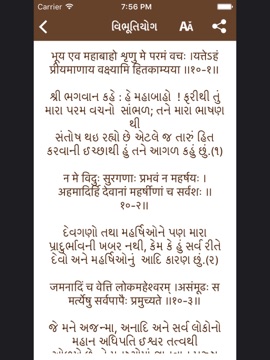 Carrier 7:56 PM
વિભૂતિયોગ
AA
भूय एव महाबाहो श्रृणु मे परमं वचः ।यत्तेऽहं
प्रीयमाणाय वक्ष्यामि हितकाम्यया ॥१०-१॥
શ્રી ભગવાન કહે : હે મહાબાહો ! ફરીથી તું
મારા પરમ વચનો સાંભળ; તને મારા ભાષણ
થી
સંતોષ થઇ રહ્યો છે એટલે જ તારું હિત
કરવાની ઇચ્છાથી હું તને આગળ કહું છું.(૧)
न मे विदुः सुरगणाः प्रभवं न महर्षयः ।
अहमादिर्हि देवानां महर्षीणां च सर्वशः ॥
१०-२॥
દેવગણો તથા મહર્ષિઓને પણ મારા
પ્રાદુર્ભાવની ખબર નથી, કેમ કે હું સર્વ રીતે
દેવો અને મહર્ષિઓનું આદિ કારણ છું.(૨)
जमनादिं च वेत्ति लोकमहेश्वरम् ।असंमूढः स
मर्त्येषु सर्वपापैः प्रमुच्यते ॥१०-३॥
જે મને અજન્મા, અનાદિ અને સર્વ લોકોનો
મહાન અધિપતિ ઈશ્વર તત્વથી